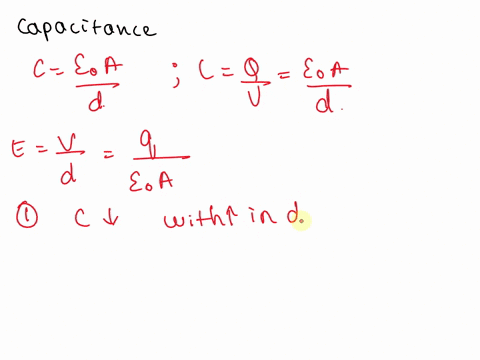 Capacitance
C = ε₀A/d ; C = Q/V = ε₀A/d.
E = V/d = q/ε₀A
① C ↓ with↑ in d.